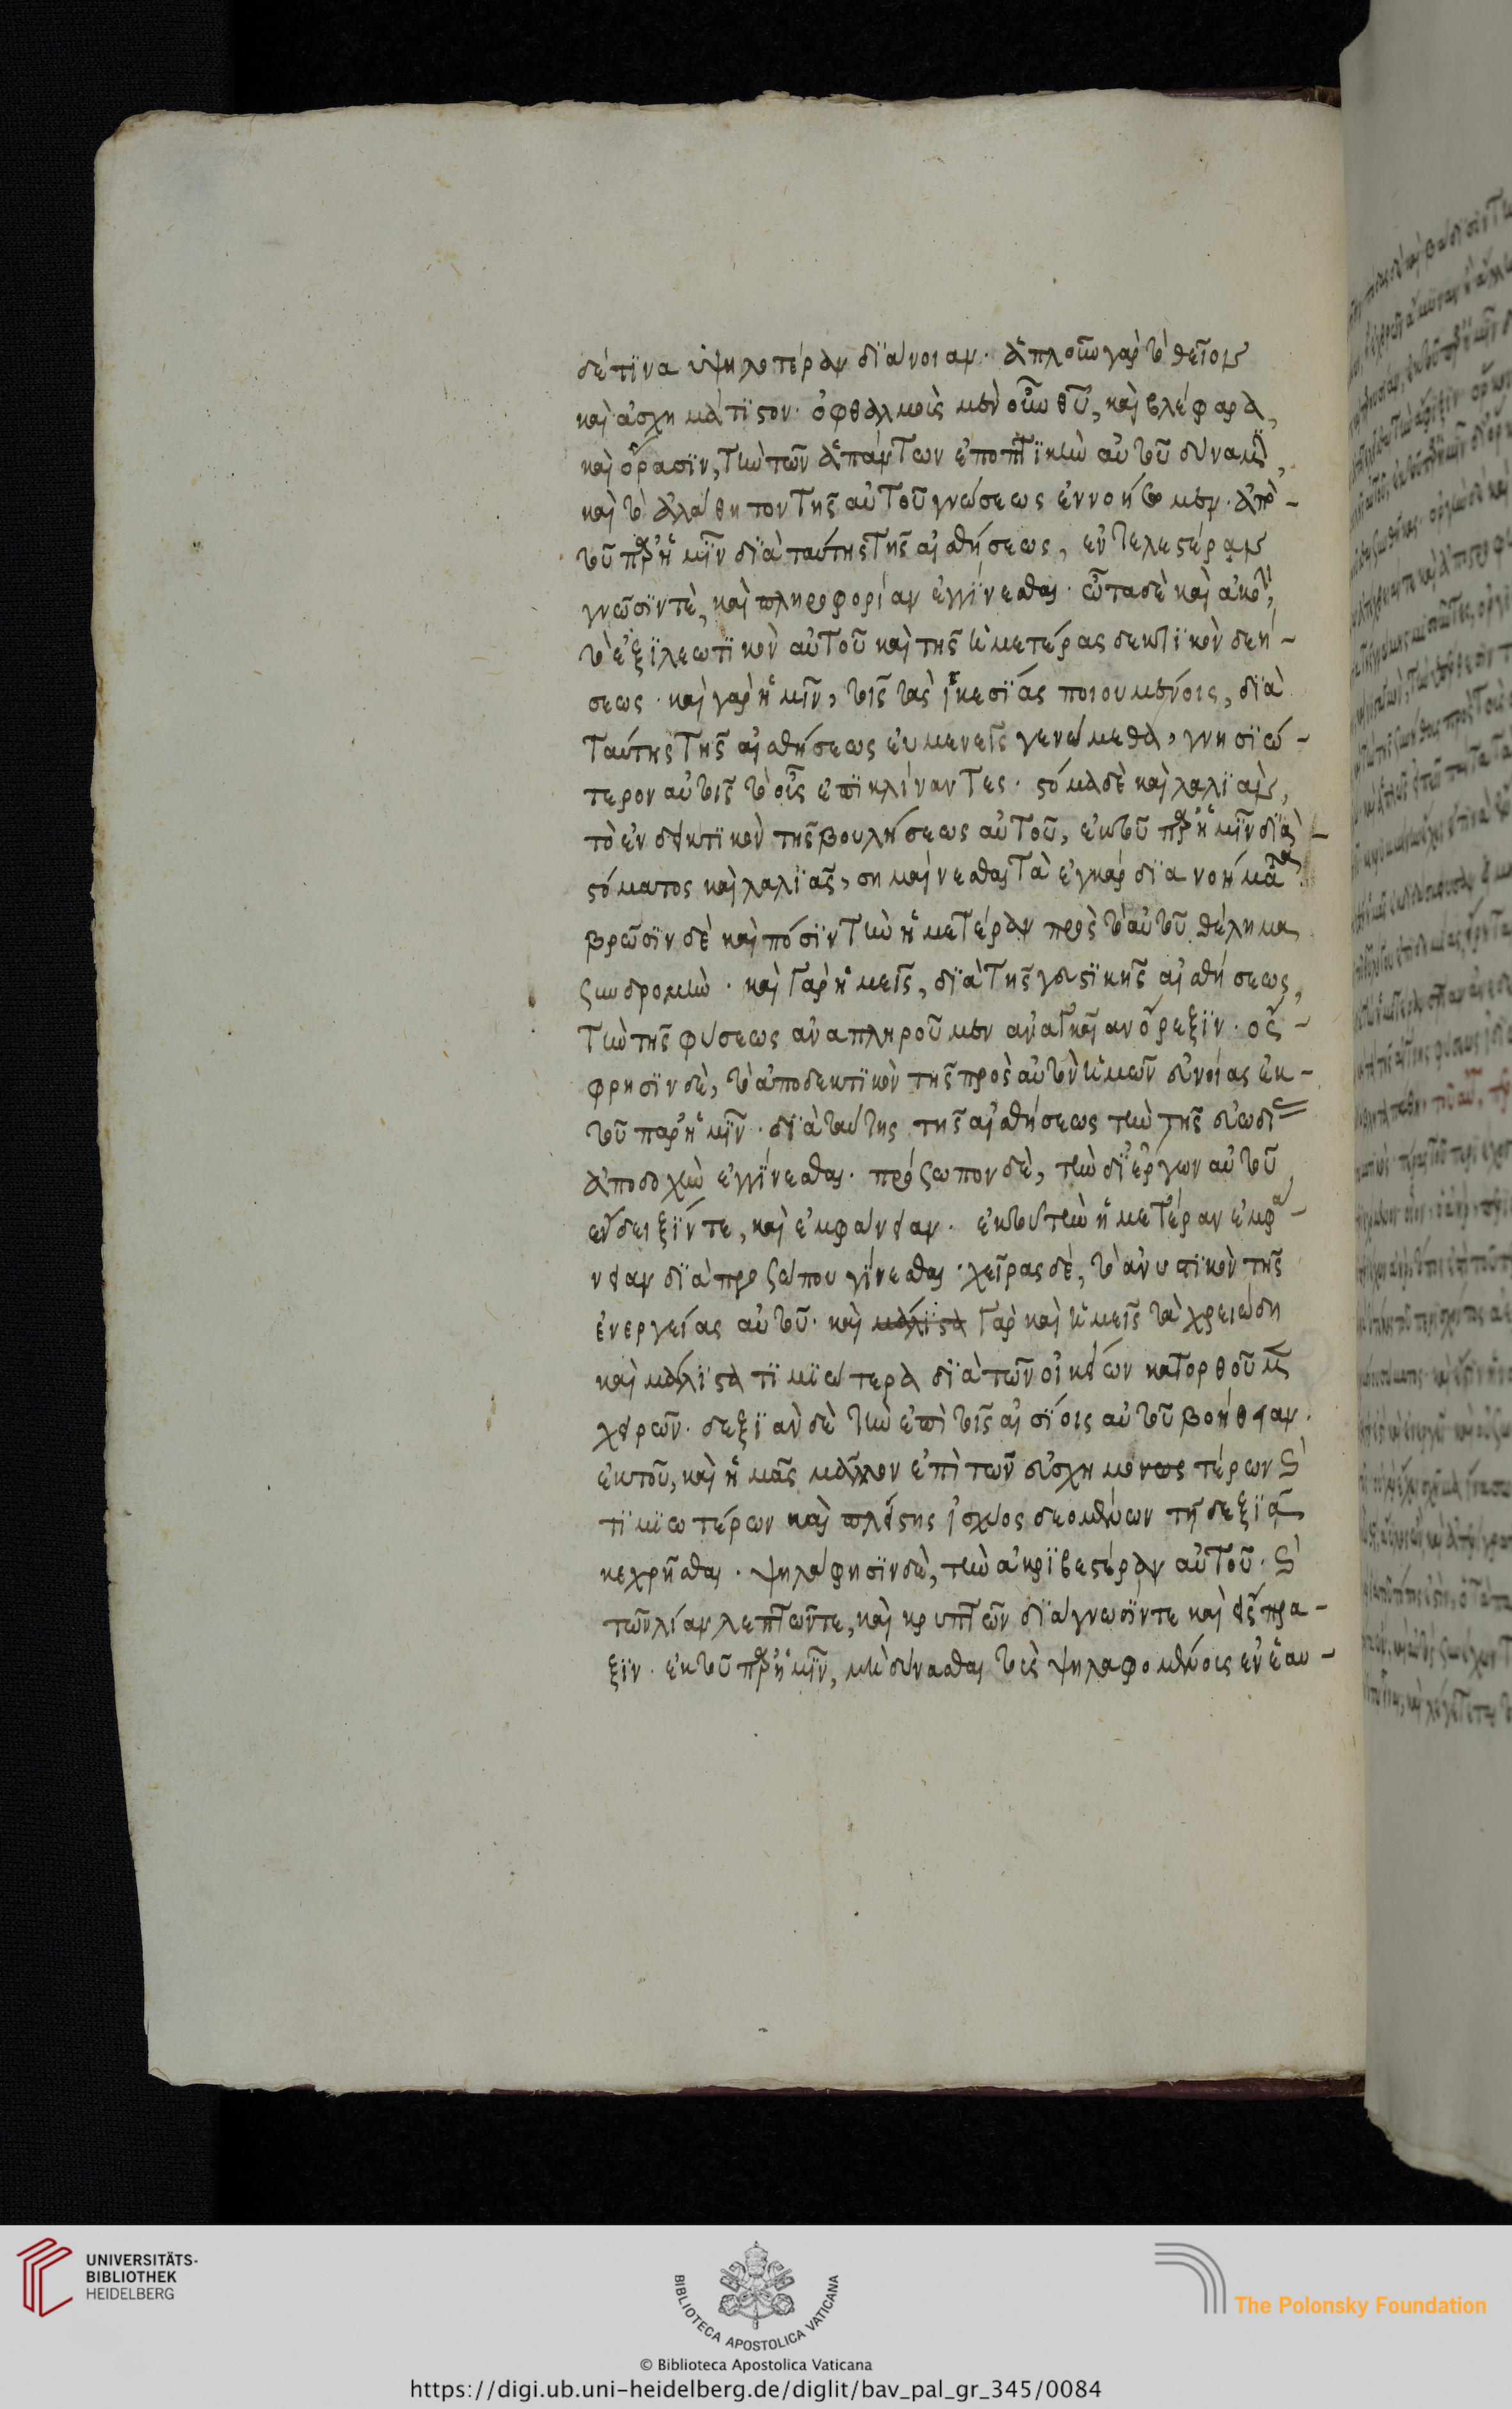 δέ τϊνα ὑψηλοτέραν δϊάνοιαν· ἁπλοῦν γὰρ τὸ θεῖον
καὶ ἀσχημάτϊστον· ὀφθαλμοὺς μὲν οὖν θυ, καὶ βλέφαρα,
καὶ ὅρασϊν, τὴν τῶν ἁπάντων ἐποπτϊκὴν αὐτοῦ δύναμϊν,
καὶ τὸ ἀλάθητον τῆς αὐτοῦ γνώσεως ἐννοήσωμεν· ἀπὸ -
τοῦ παρ' ἡμῖν δϊὰ ταύτης τῆς αἰσθήσεως, ἐντελεστέραν
γνῶσϊν τὲ, καὶ πληροφορίαν ἐγγίνεσθαι· ὦτα δὲ καὶ ἀκοὴν,
τὸ ἐξϊλεωτϊκὸν αὐτοῦ καὶ τῆς ἡμετέρας δεκτϊκὸν δεή -
σεως· καὶ γὰρ ἡμῖν, τοῖς τὰς ἱκεσϊας ποιουμένοις, δϊὰ
ταύτης τῆς αἰσθήσεως εὐμενεῖς γενώμεθα, γνησϊώ -
τερον αὐτοῖς τὸ οὖς ἐπϊκλίναντες· στόμα δὲ καὶ λαλϊὰν,
τὸ ἐνδεικτϊκὸν τῆς βουλήσεως αὐτοῦ, ἐκ τοῦ παρ' ἡμῖν δϊὰ -
στόματος καὶ λαλϊᾶς, σημαίνεσθαι τὰ ἐγκάρδϊα νοήματα·
βρῶσϊν δὲ καὶ πόσϊν τὴν ἡμετέραν πρὸς τὸ αὐτοῦ θέλημα
συνδρομὴν· καὶ γὰρ ἡμεῖς, δϊὰ τῆς γευστϊκῆς αἰσθήσεως,
τὴν τῆς φύσεως ἀναπληροῦμεν ἀναγκαίαν ὄρεξϊν· ὄσ -
φρησϊν δὲ, τὸ ἀποδεκτϊκὸν τῆς πρὸς αὐτὸν ἡμῶν εὐνοίας ἐκ -
τοῦ παρ' ἡμῖν· δϊὰ ταύτης τῆς αἰσθήσεως τὴν τῆς εὐωδί
ἀποδοχὴν ἐγγίνεσθαι· πρόσωπον δὲ, τὴν δϊ' ἔργων αὐτοῦ
ἔνδειξίν τε, καὶ ἐμφάνειαν· ἐκ τοῦ τὴν ἡμετέραν ἐμφά -
νειαν δϊὰ προσώπου γίνεσθαι· χεῖρας δὲ, τὸ ἀνυστϊκὸν τῆς
ἐνεργείας αὐτοῦ· καὶ μάλϊστα γὰρ καὶ ἡμεῖς τὰ χρειώδη
καὶ μάλϊστα τϊμϊώτερα δϊὰ τῶν οἰκείων κατορθοῦμεν
χειρῶν· δεξϊὰν δὲ τὴν ἐπὶ τοῖς αἰσϊοις αὐτοῦ βοήθειαν·
ἐκ τοῦ, καὶ ἡμᾶς μᾶλλον ἐπὶ τῶν εὐσχημονεστέρων καὶ
τϊμϊωτέρων καὶ πλείστης ἰσχύος δεομένων τῇ δεξϊᾷ
κεχρῆσθαι· ψηλάφησϊν δὲ, τὴν ἀκρϊβεστέραν αὐτοῦ· καὶ
τῶν λίαν λεπτῶν τε, καὶ κρυπτῶν δϊάγνωσϊν τε καὶ εἴσπρα -
ξϊν· ἐκ τοῦ παρ' ἡμῖν, μὴ δύνασθαι τοὺς ψηλαφομένους ἐν ἑαυ -
UNIVERSITÄTS-
BIBLIOTHEK
HEIDELBERG
BIBLIOTECA APOSTOLICA VATICANA
The Polonsky Foundation
© Biblioteca Apostolica Vaticana
https://digi.ub.uni-heidelberg.de/diglit/bav_pal_gr_345/0084